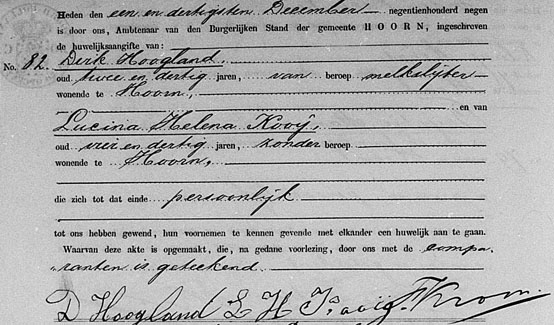 Heden den een en dertigsten December negentienhonderd negen
is door ons, Ambtenaar van den Burgerlijken Stand der gemeente HOORN, ingeschreven
de huwelijksaangifte van:
No. 82. Dirk Hoogland
oud twee en dertig jaren, van beroep melkslijter
wonende te Hoorn,
en van
Lucina Helena Kooij,
oud vier en dertig jaren, zonder beroep
wonende te Hoorn,
die zich tot dat einde persoonlijk
tot ons hebben gewend, hun voornemen te kennen gevende met elkander een huwelijk aan te gaan.
Waarvan deze akte is opgemaakt, die, na gedane voorlezing, door ons met de compa-
ranten is geteekend.
D Hoogland L H Kooij